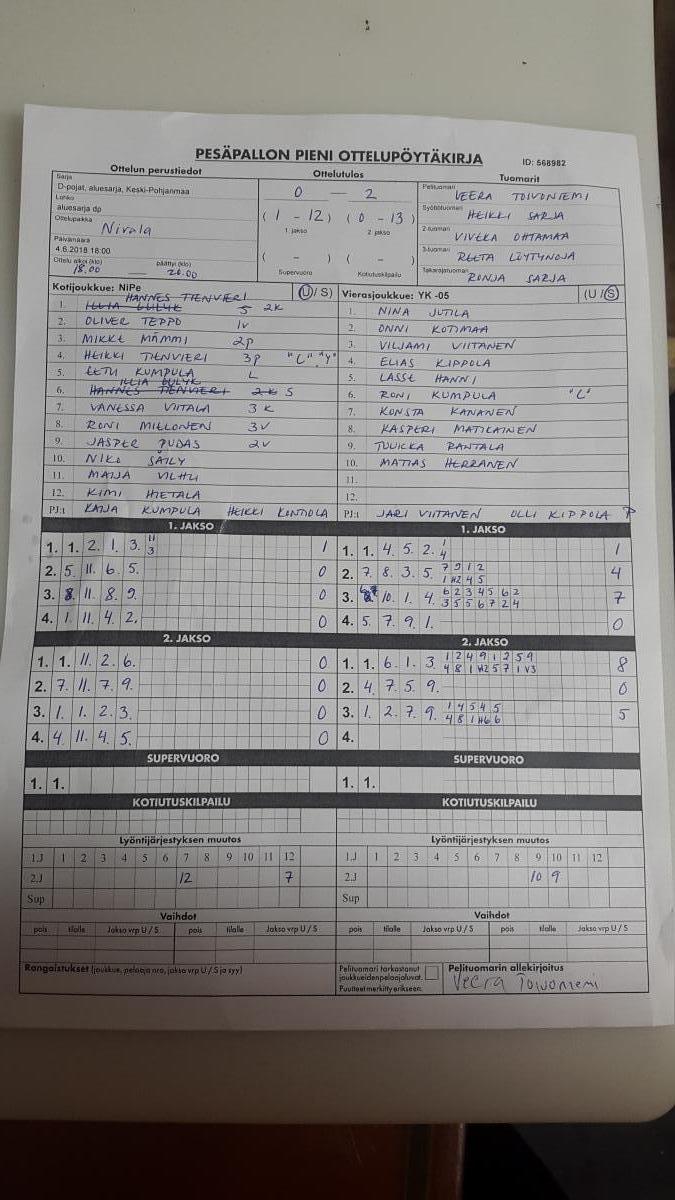 PESÄPALLON PIENI OTTELUPÖYTÄKIRJA
ID: 568982
Ottelun perustiedot
Ottelutulos
Tuomarit
Sarja
D-pojat, aluesarja, Keski-Pohjanmaa
Lohko
aluesarja dp
Ottelupaikka
Nivala
Päivämäärä
4.6.2018 18:00
Ottelu alkoi (klo) päättyi (klo)
18.00 — 20.00
0 — 2
(1 - 12) (0 - 13)
1. jakso 2. jakso
( - ) ( - )
Supervuoro Kotiutuskilpailu
Pelituomari VEERA TOIVONIEMI
Syöttötuomari HEIKKI SARJA
2-tuomari VIVEKA OHTAMAA
3-tuomari REETA LÖYTYNOJA
Takarajatuomari RONJA SARJA
Kotijoukkue: NiPe (U/S)
HANNES TIENVIERI
1. 5 2K
2. OLIVER TEPPO 1V
3. MIKKE MÄMMI 2P
4. HEIKKI TIENVIERI 3P "C" "Y"
5. EETU KUMPULA L
6. HANNES TIENVIERI 2K 5
7. VANESSA VIITALA 3K
8. RONI MILLONEN 3V
9. JASPER PUDAS 2V
10. NIKO SÄILY
11. MAIJA VILHU
12. KIMI HIETALA
PJ:t KAIJA KUMPULA HEIKKI KONTIOLA
Vierasjoukkue: YK -05 (U/S)
1. NINA JUTILA
2. ONNI KOTIMAA
3. VILJAMI VIITANEN
4. ELIAS KIPPOLA
5. LASSE HANNI
6. RONI KUMPULA "C"
7. KONSTA KANANEN
8. KASPERI MATILAINEN
9. TUUKKA RANTALA
10. MATIAS HERRANEN
11.
12.
PJ:t JARI VIITANEN OLLI KIPPOLA P
1. JAKSO
1. 1. 2. 1. 3. 11 3 1
2. 5. 11. 6. 5. 0
3. 8. 11. 8. 9. 0
4. 1. 11. 4. 2. 0
1. JAKSO
1. 1. 4. 5. 2. 1 4 1
2. 7. 8. 3. 5. 7 9 1 2 1 H2 4 5 4
3. 10. 1. 4. 6 2 3 4 5 6 2 3 5 5 6 7 2 4 7
4. 5. 7. 9. 1. 0
2. JAKSO
1. 1. 11. 2. 6. 0
2. 7. 11. 7. 9. 0
3. 1. 1. 2. 3. 0
4. 4. 11. 4. 5. 0
2. JAKSO
1. 1. 6. 1. 3. 1 2 4 9 1 2 5 9 4 8 1 H2 5 7 1 V3 8
2. 4. 7. 5. 9. 0
3. 1. 2. 7. 9. 1 4 5 4 5 4 8 1 H6 6 5
4.
SUPERVUORO
1. 1.
SUPERVUORO
1. 1.
KOTIUTUSKILPAILU
KOTIUTUSKILPAILU
Lyöntijärjestyksen muutos
1.J 1 2 3 4 5 6 7 8 9 10 11 12
2.J 12 7
Sup
Lyöntijärjestyksen muutos
1.J 1 2 3 4 5 6 7 8 9 10 11 12
2.J 10 9
Sup
Vaihdot
pois tilalle Jakso vrp U / S pois tilalle Jakso vrp U / S
Vaihdot
pois tilalle Jakso vrp U / S pois tilalle Jakso vrp U / S
Rangaistukset (joukkue, pelaaja nro, jakso vrp U / S ja syy)
Pelituomari tarkastanut
joukkueiden pelaajaluvat.
Puutteet merkitty erikseen.
Pelituomarin allekirjoitus
Veera Toivoniemi